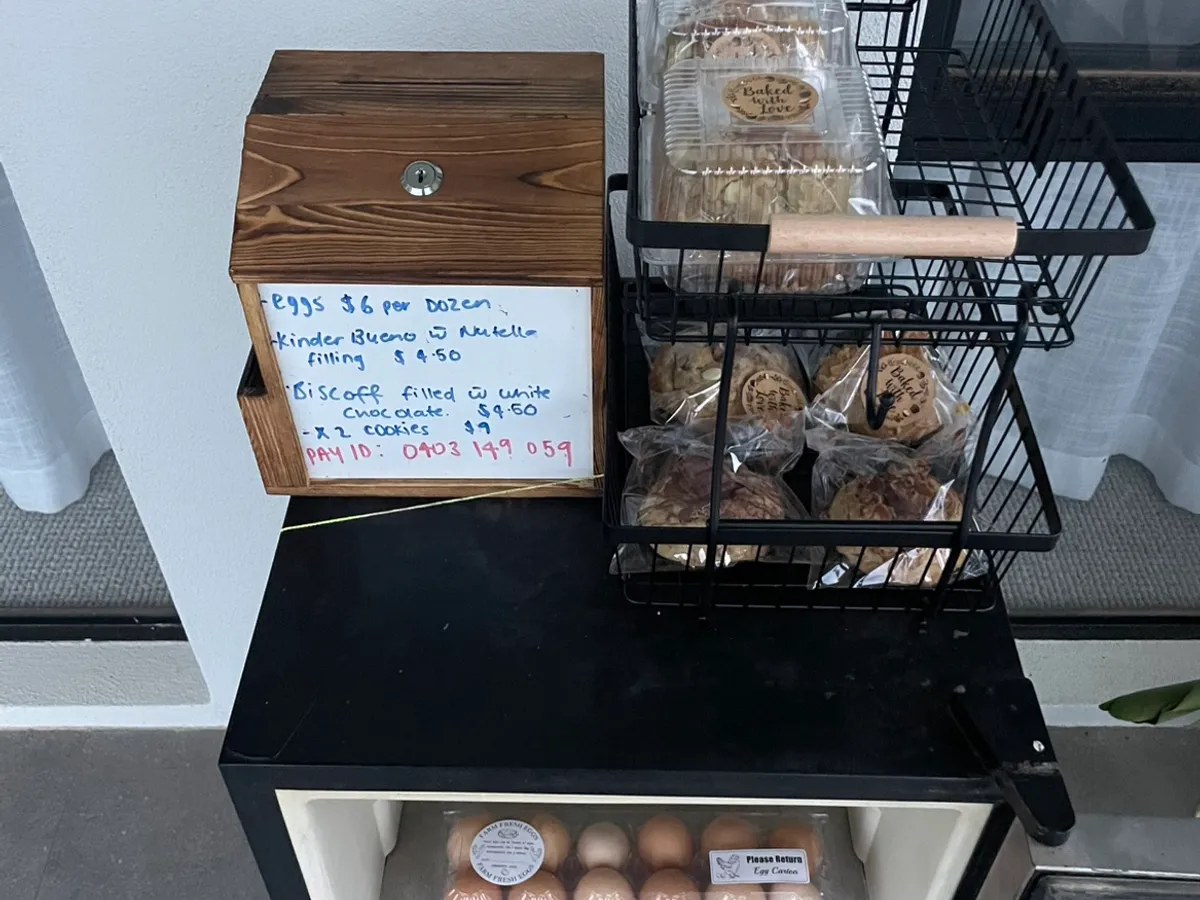 Baked
with
Love
-eggs $6 per Dozen
-Kinder Bueno w̄ Nutella
filling $4.50
-Biscoff filled w̄ white
chocolate. $4.50
-x 2 cookies $9
PAY ID: 0403 149 059
Baked
with
Love
Baked
with
FARM FRESH EGGS
FARM FRESH EGGS
Please Return
Egg Carton